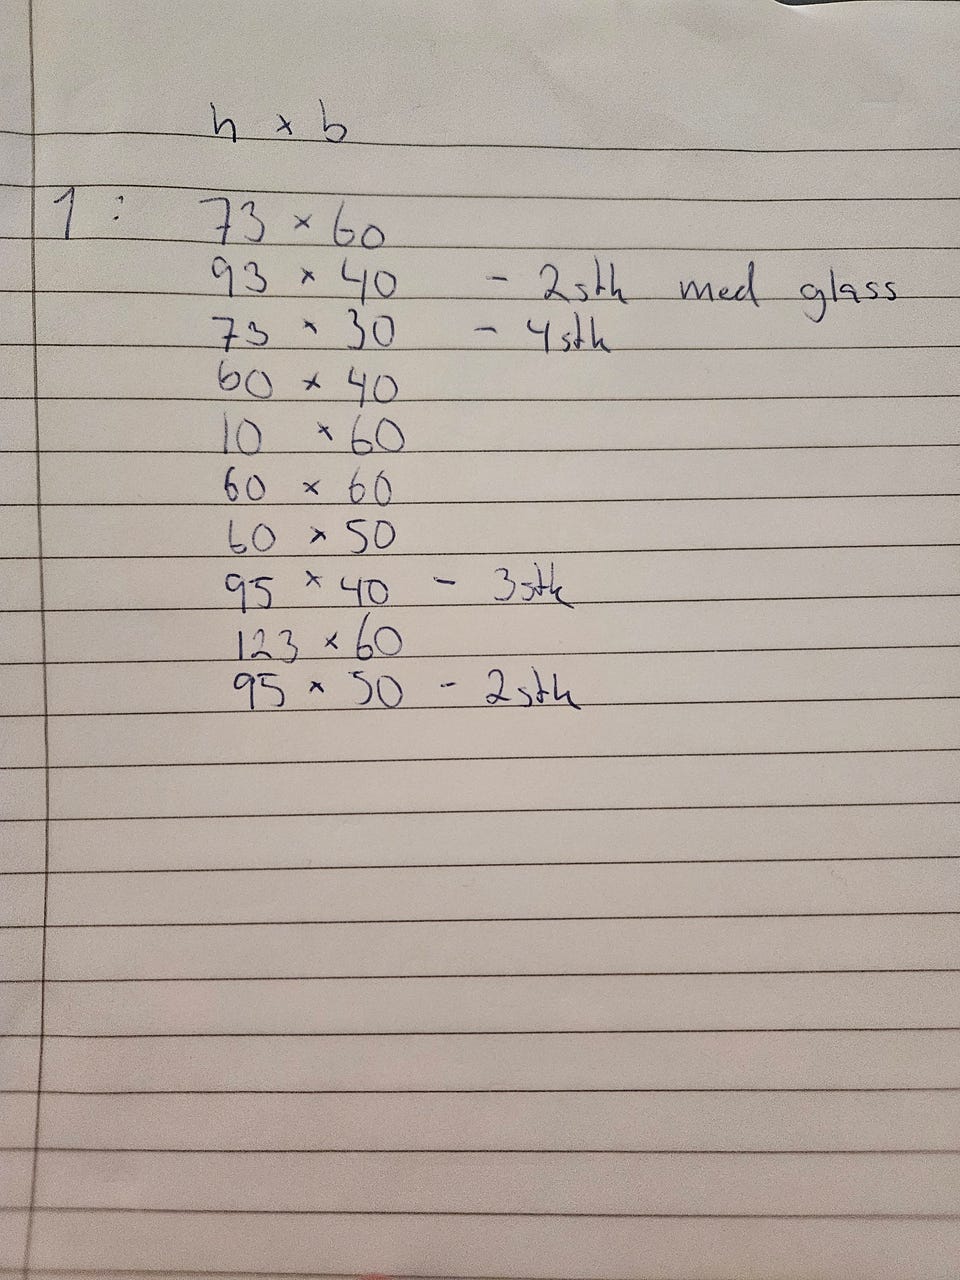 h x b
1 : 73 x 60
93 x 40 - 2stk med glass
73 x 30 - 4stk
60 x 40
10 x 60
60 x 60
60 x 50
95 x 40 - 3stk
123 x 60
95 x 50 - 2stk